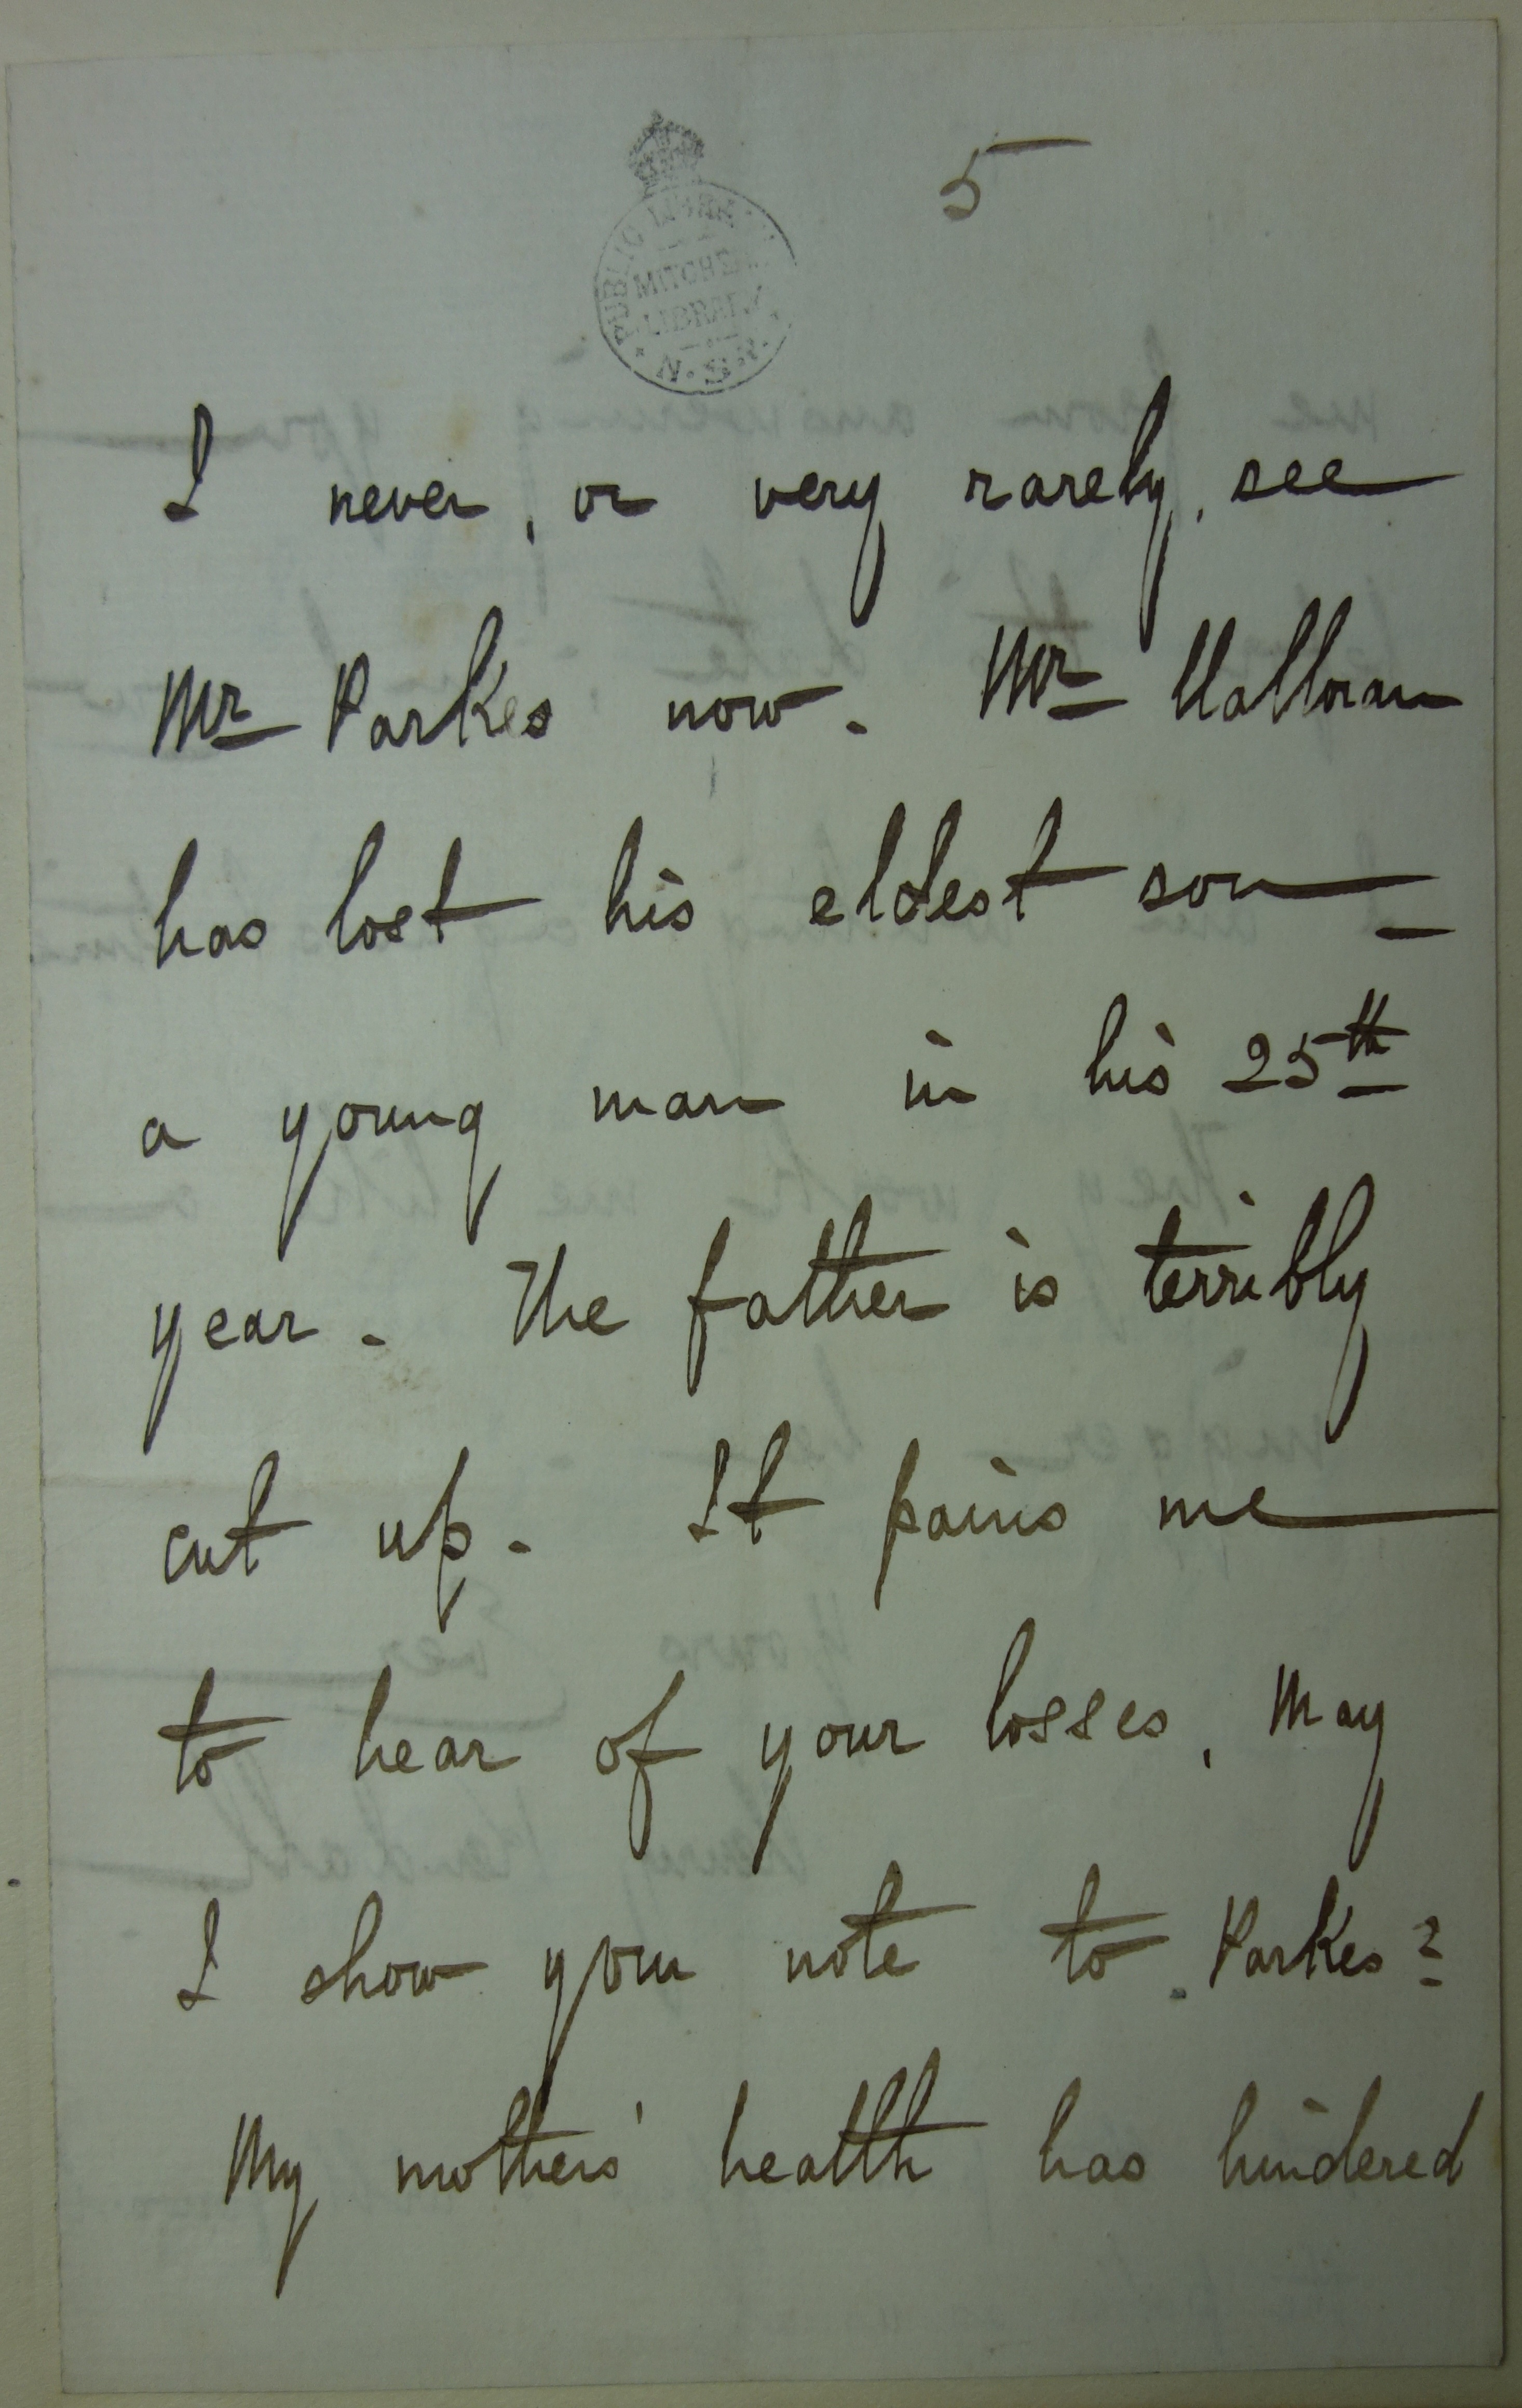 5
PUBLIC LIBRARY
MITCHELL
LIBRARY
N.S.W.
I never, or very rarely, see
Mr Parkes now. Mr Halloran
has lost his eldest son –
a young man in his 25th
year. The father is terribly
cut up. It pains me
to hear of your losses. May
I show your note to Parkes?
My mothers' health has hindered